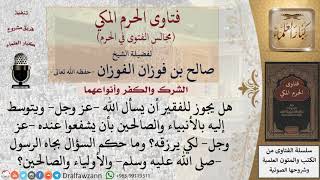 فتاوى الحرم المكي
(مجالس الفتوى في الحرم)
لفضيلة الشيخ
صالح بن فوزان الفوزان - حفظه الله تعالى
الشرك والكفر وأنواعهما
هل يجوز للفقير أن يسأل الله -عز وجل- ويتوسط
إليه بالأنبياء والصالحين بأن يشفعوا عنده -عز
وجل- لكي يرزقه؟ وما حكم السؤال بجاه الرسول
-صلى الله عليه وسلم- والأولياء والصالحين؟
تنفيذ
فريق مشروع
كبار العلماء
كبار العلماء
فتاوى
الحرم المكي
سلسلة الفتاوى من
الكتب والمتون العلمية
وشروحها الصوتية
Dralfawzann